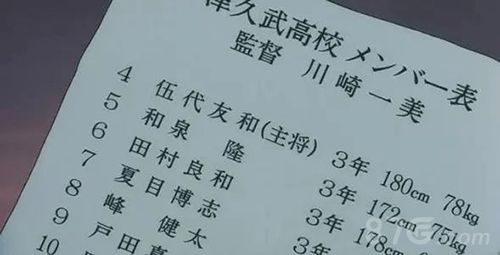 津久武高校 メンバー表
監督 川崎一美
4 伍代友和(主将) 3年 180cm 78kg
5 和泉 隆 3年 172cm 75kg
6 田村良和 3年 178cm
7 夏目博志
8 峰 健太
9 戸田
10